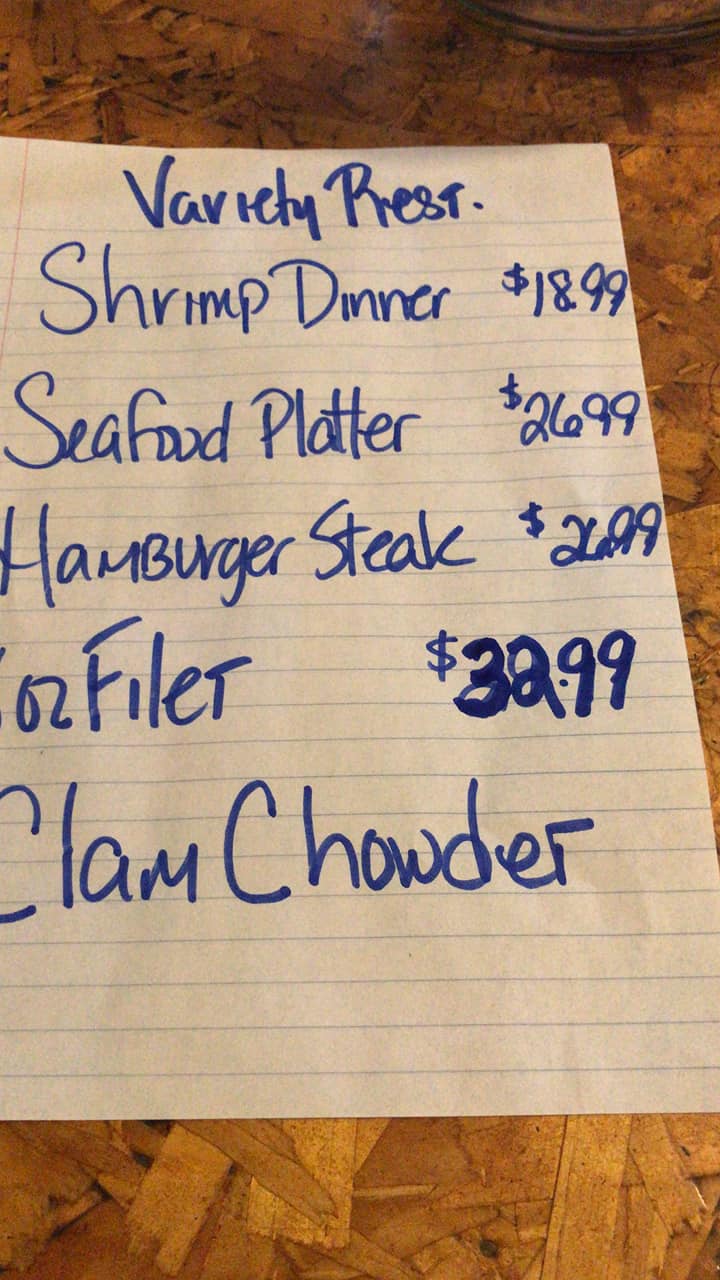 Variety Rest.
Shrimp Dinner $18.99
Seafood Platter $26.99
Hamburger Steak $26.99
oz Filet $32.99
Clam Chowder